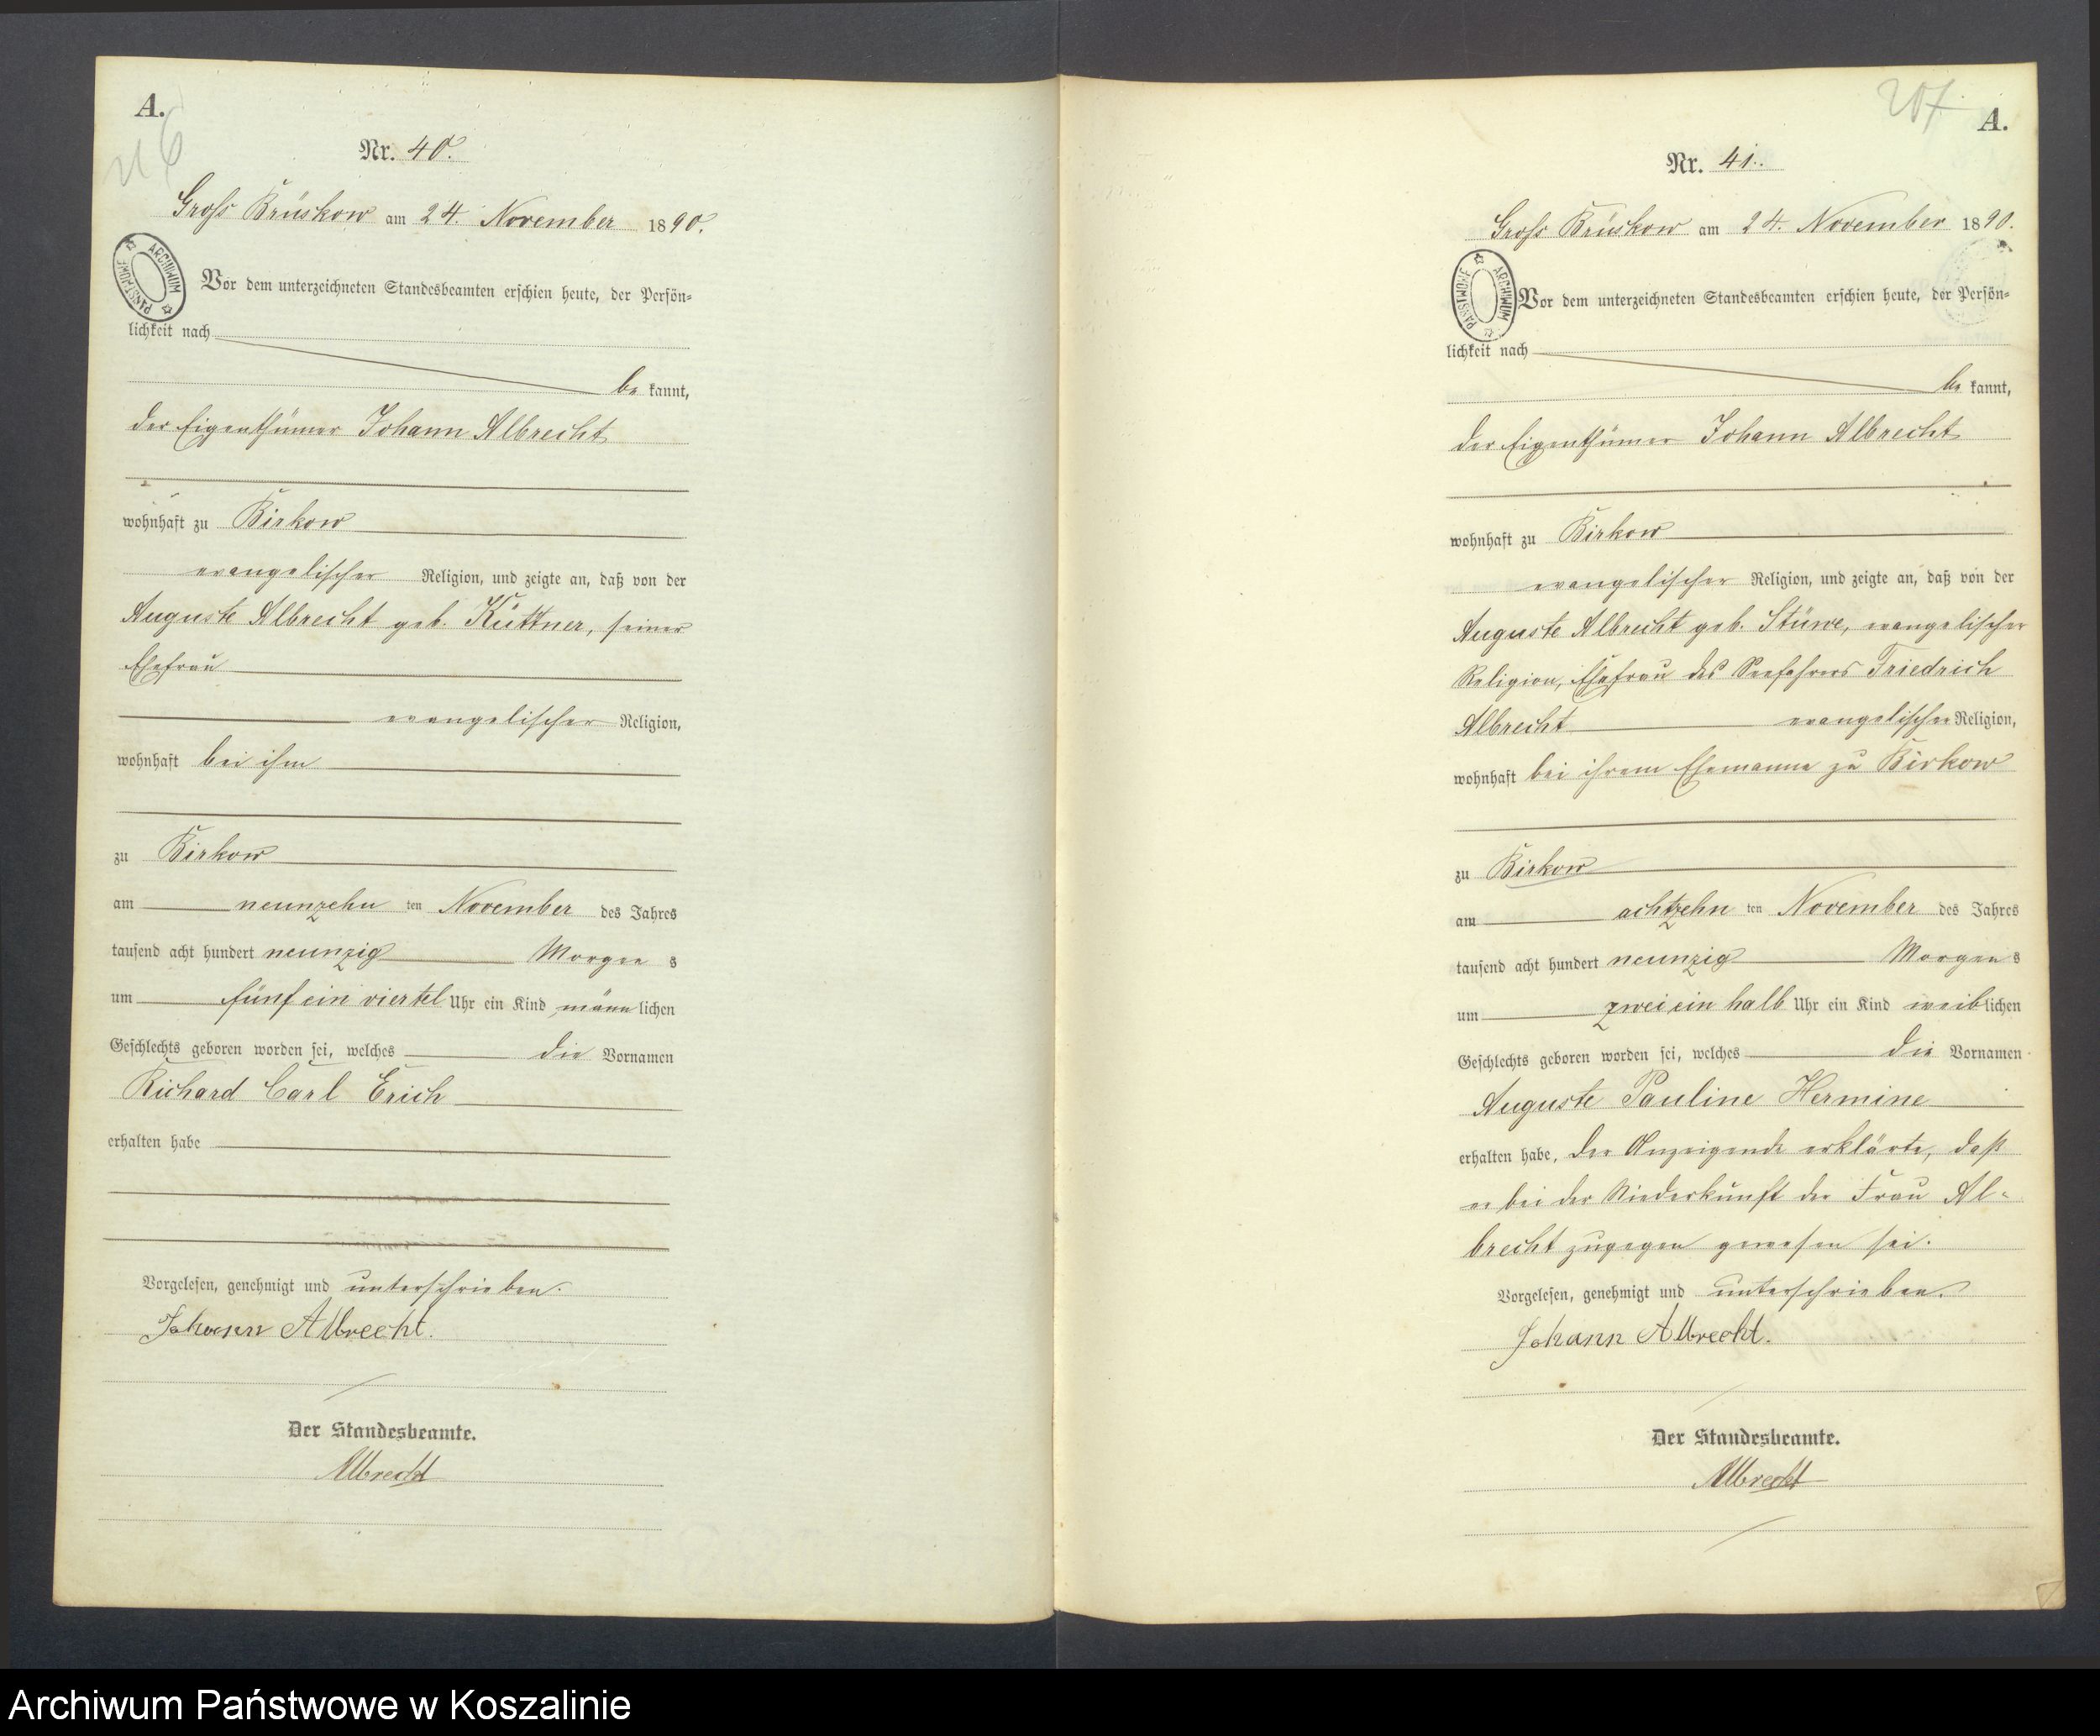 A.
Nr. 40.
Groß Brüskow am 24. November 1890.
ARCHIWUM PAŃSTWOWE
Vor dem unterzeichneten Standesbeamten erschien heute, der Persön=
lichkeit nach
be kannt,
der Eigenthümer Johann Albrecht
wohnhaft zu Birkow
evangelischer Religion, und zeigte an, daß von der
Auguste Albrecht geb. Küttner, seiner
Ehefrau
evangelischer Religion,
wohnhaft bei ihm
zu Birkow
am neunzehn ten November des Jahres
tausend acht hundert neunzig Morgen s
um fünf ein viertel Uhr ein Kind männ lichen
Geschlechts geboren worden sei, welches die Vornamen
Richard Carl Erich
erhalten habe
Vorgelesen, genehmigt und unterschrieben.
Johann Albrecht.
Der Standesbeamte.
Albrecht
207
A.
Nr. 41.
Groß Brüskow am 24. November 1890.
ARCHIWUM PAŃSTWOWE
Vor dem unterzeichneten Standesbeamten erschien heute, der Persön=
lichkeit nach
be kannt,
der Eigenthümer Johann Albrecht
wohnhaft zu Birkow
evangelischer Religion, und zeigte an, daß von der
Auguste Albrecht geb. Stüwe, evangelischer
Religion, Ehefrau des Seefahrers Friedrich
Albrecht evangelischer Religion,
wohnhaft bei ihrem Ehemanne zu Birkow
zu Birkow
am achtzehn ten November des Jahres
tausend acht hundert neunzig Morgen s
um zwei ein halb Uhr ein Kind weib lichen
Geschlechts geboren worden sei, welches die Vornamen
Auguste Pauline Hermine
erhalten habe, der Anzeigende erklärte, daß
er bei der Niederkunft der Frau Al=
brecht zugegen gewesen sei.
Vorgelesen, genehmigt und unterschrieben.
Johann Albrecht.
Der Standesbeamte.
Albrecht
Archiwum Państwowe w Koszalinie